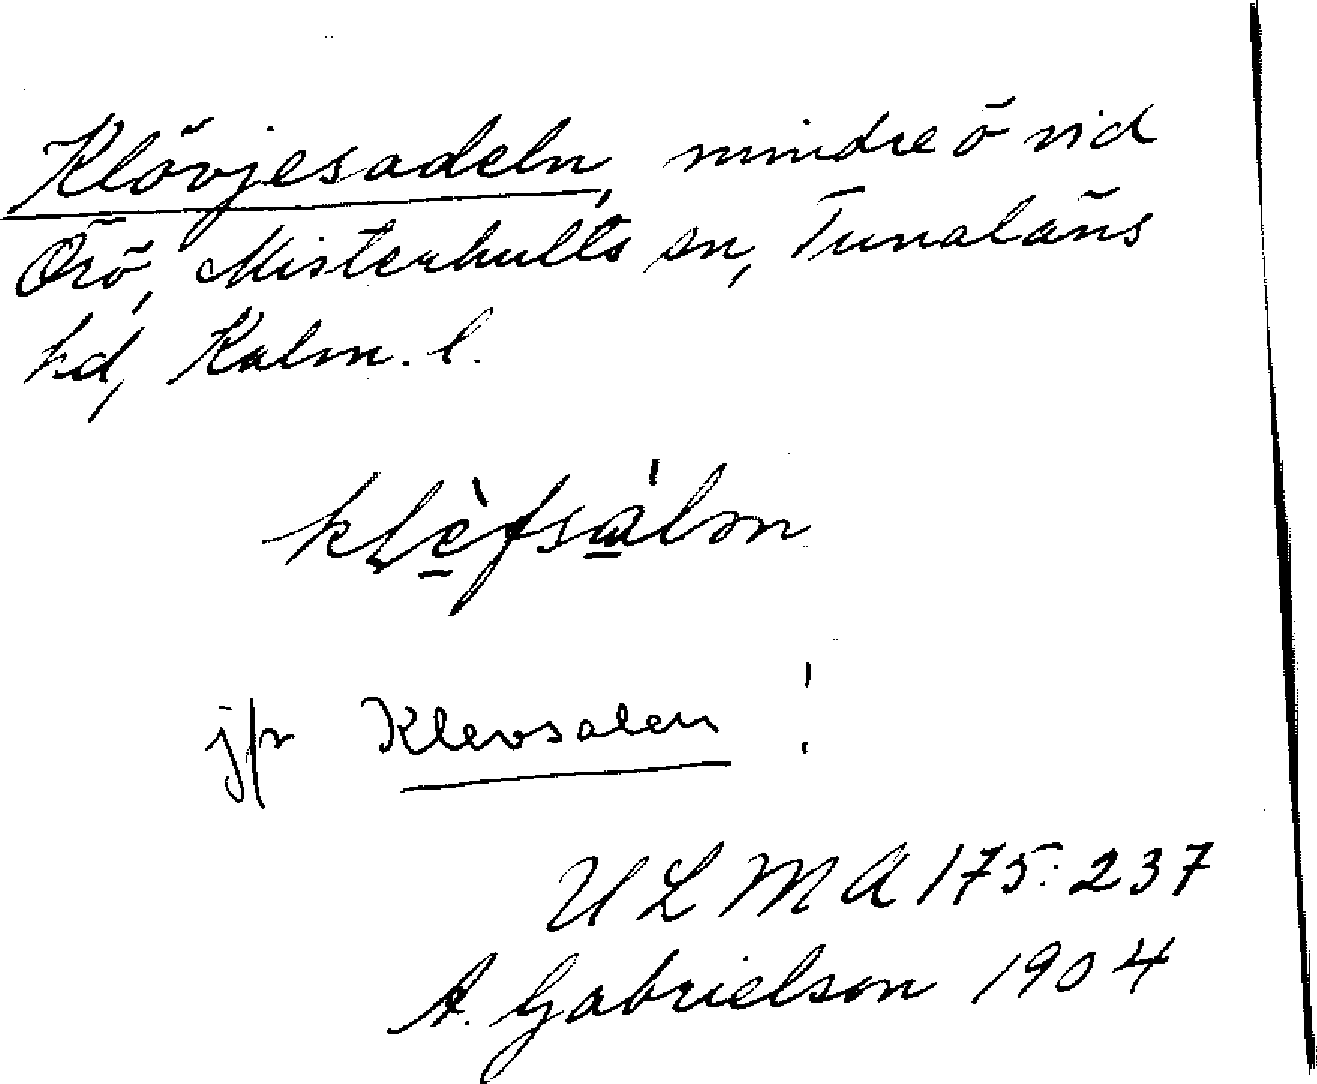 Klövjesadeln, mindre ö vid
Örö, Misterhults sn, Tunaläns
hd, Kalm. l.
klè̠fsa̠'lən
jfr Klevsalen !
ULMA 175:237
A. Gabrielson 1904